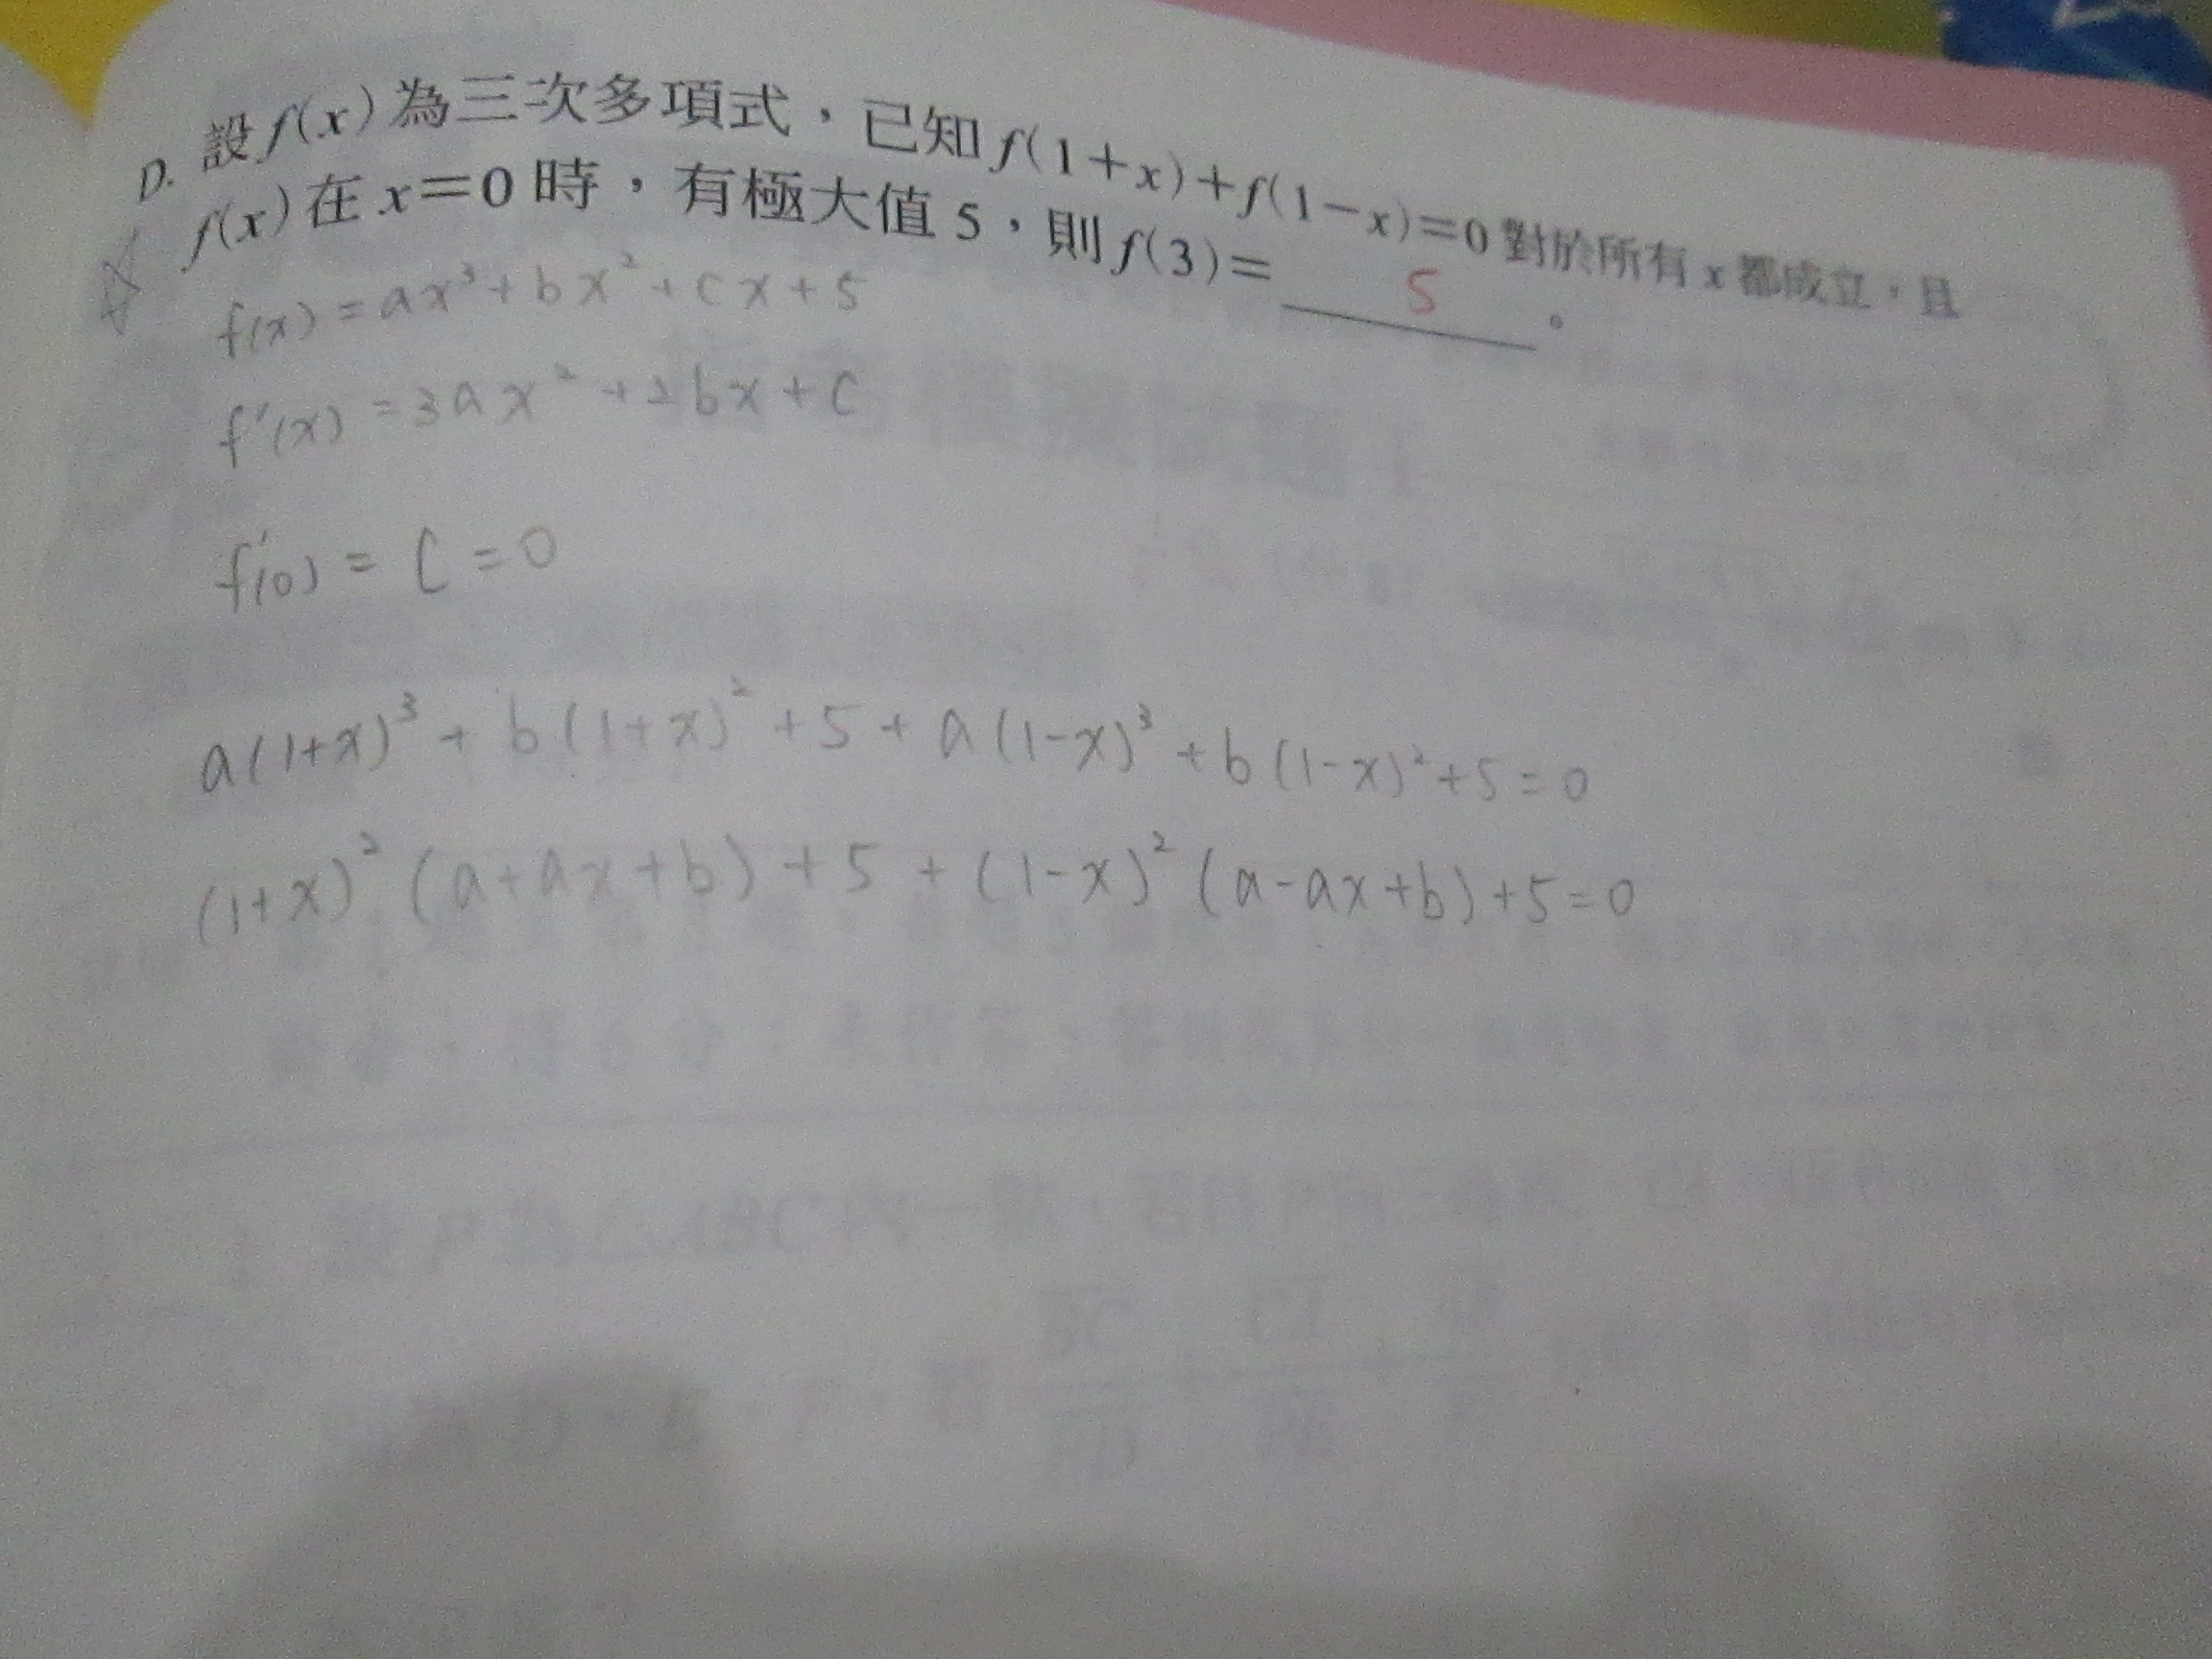 D. 設 f(x) 為三次多項式，已知 f(1+x)+f(1-x)=0 對於所有 x 都成立，且
f(x) 在 x=0 時，有極大值 5，則 f(3)= 5 。
f(x) = ax³ + bx² + cx + 5
f'(x) = 3ax² + 2bx + c
f'(0) = C = 0
a(1+x)³ + b(1+x)² + 5 + a(1-x)³ + b(1-x)² + 5 = 0
(1+x)² (a+ax+b) + 5 + (1-x)² (a-ax+b) + 5 = 0